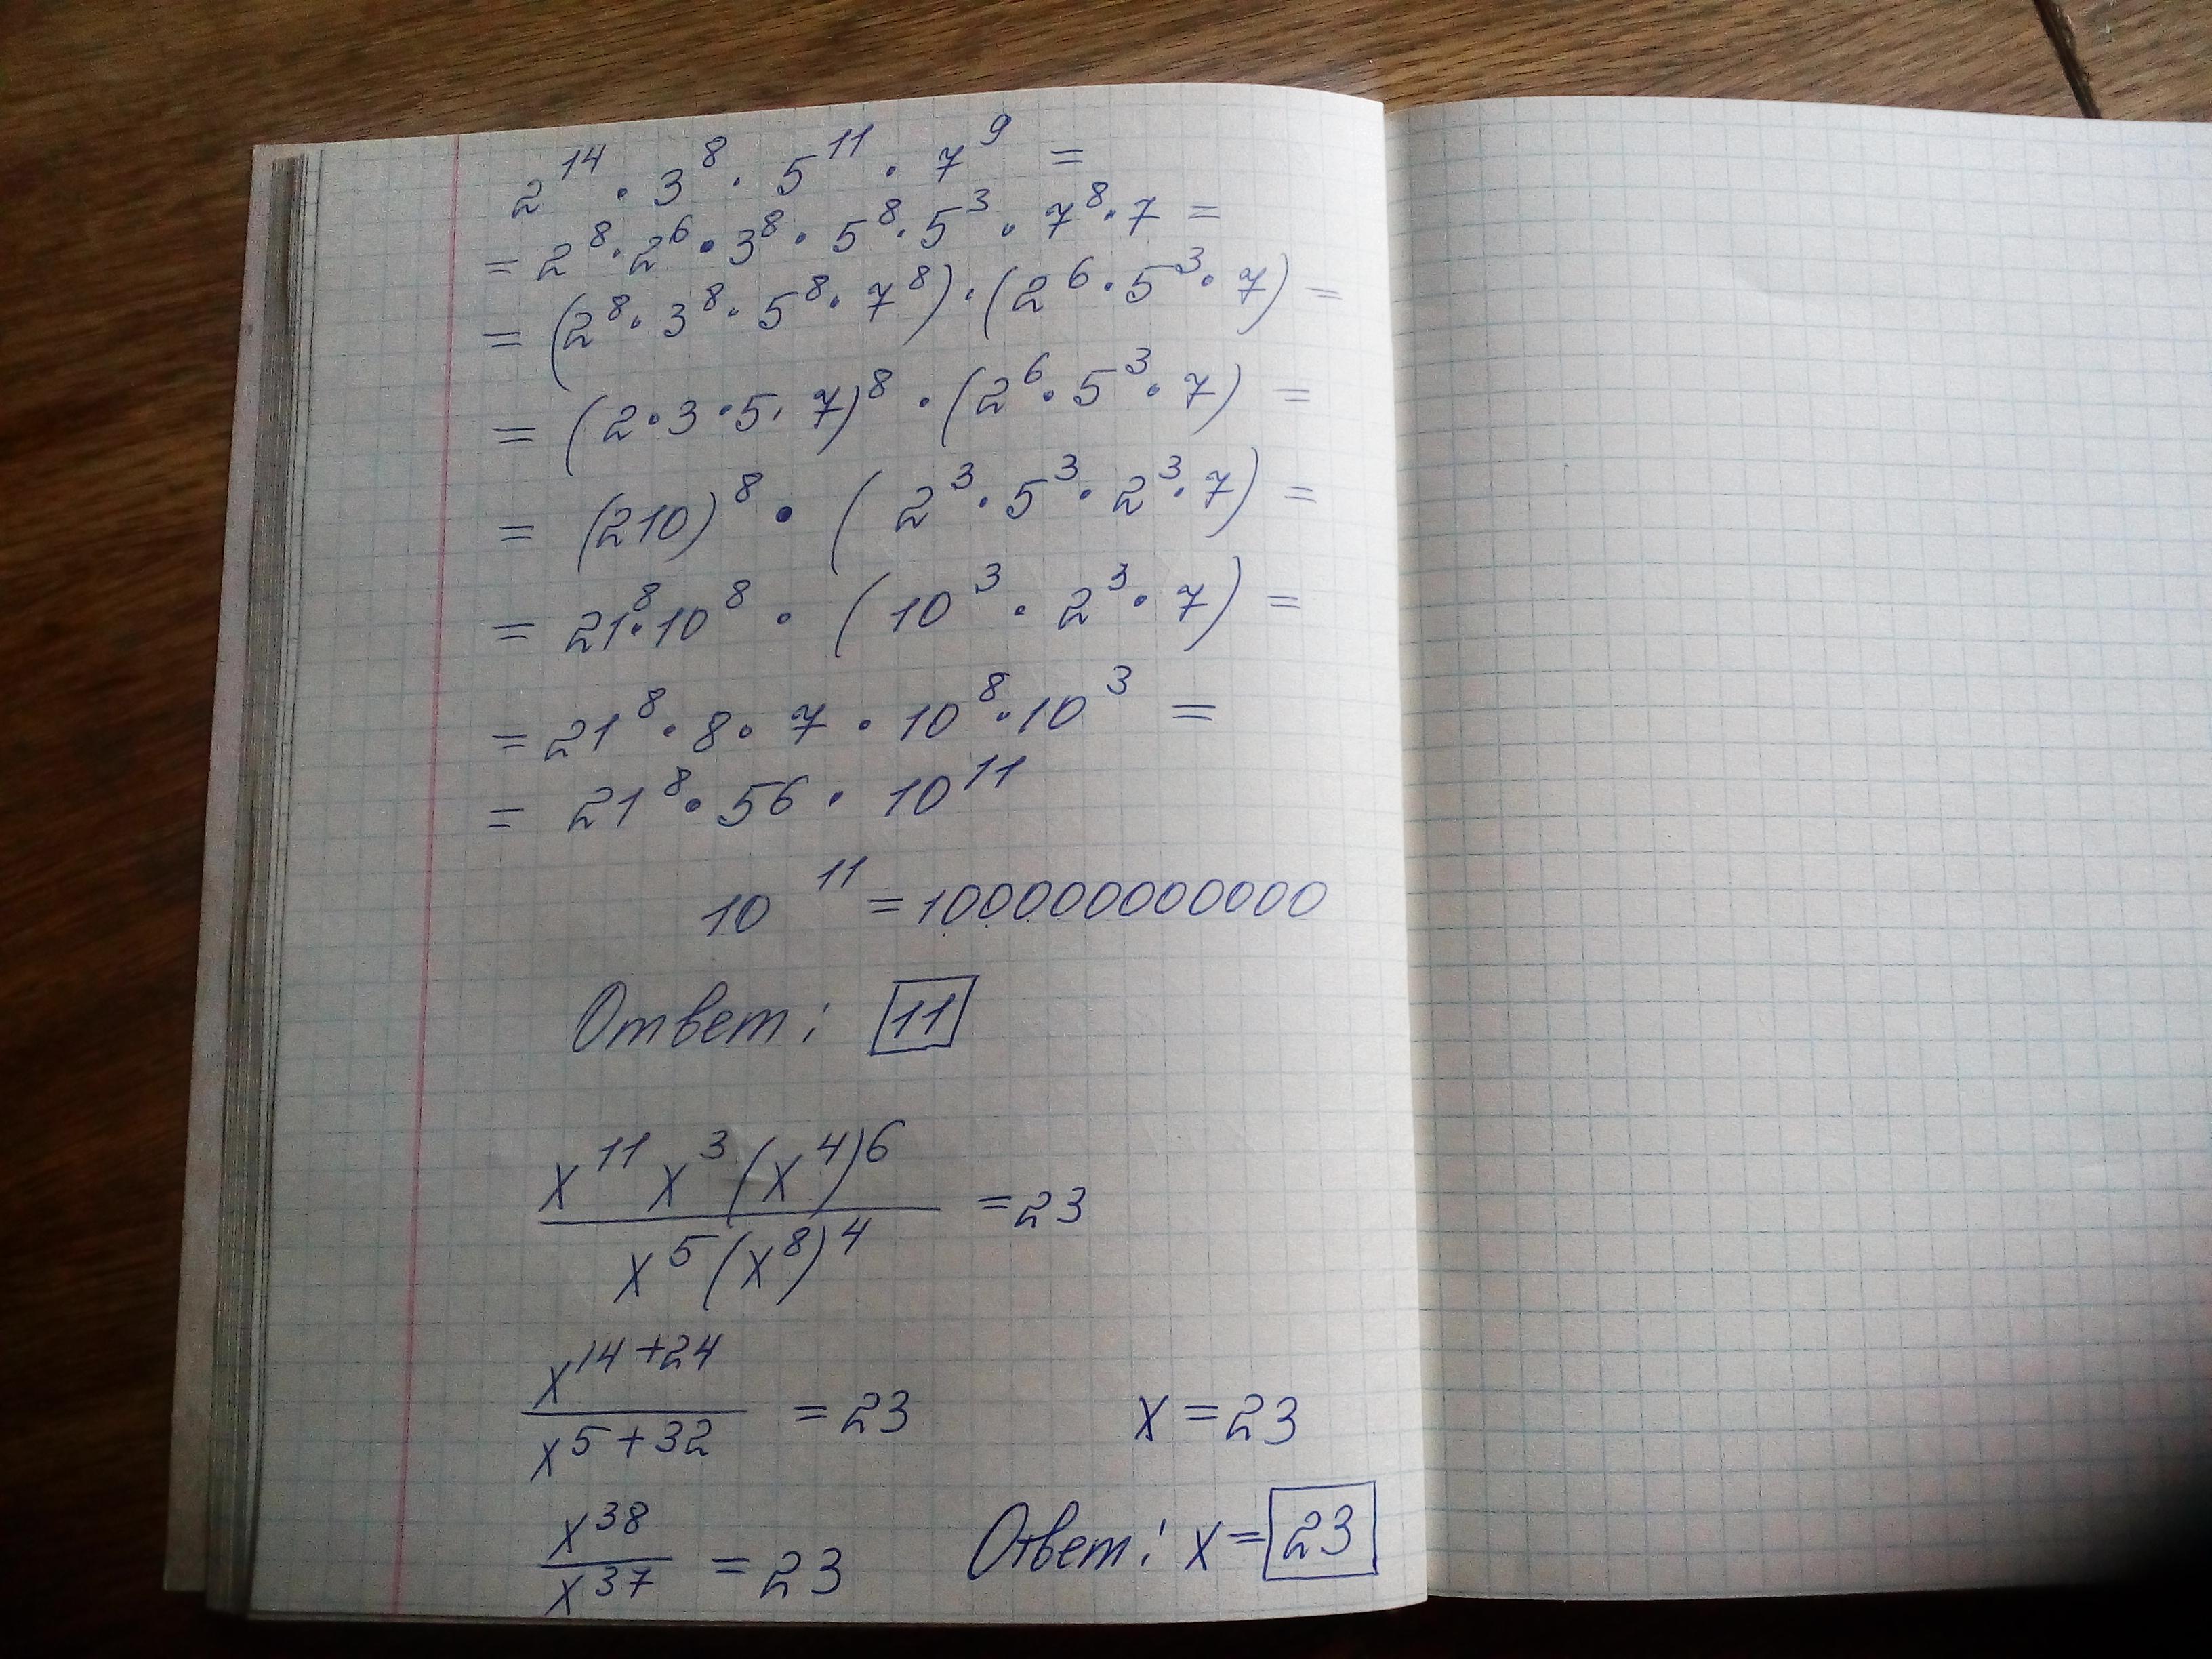 2^14 · 3^8 · 5^11 · 7^9 =
= 2^8 · 2^6 · 3^8 · 5^8 · 5^3 · 7^8 · 7 =
= (2^8 · 3^8 · 5^8 · 7^8) · (2^6 · 5^3 · 7) =
= (2 · 3 · 5 · 7)^8 · (2^6 · 5^3 · 7) =
= (210)^8 · (2^3 · 5^3 · 2^3 · 7) =
= 21^8 · 10^8 · (10^3 · 2^3 · 7) =
= 21^8 · 8 · 7 · 10^8 · 10^3 =
= 21^8 · 56 · 10^11
10^11 = 100000000000
Ответ: 11
x^11 x^3 (x^4)^6 / x^5 (x^8)^4 = 23
x^14+24 / x^5+32 = 23
x = 23
x^38 / x^37 = 23
Ответ: x = 23